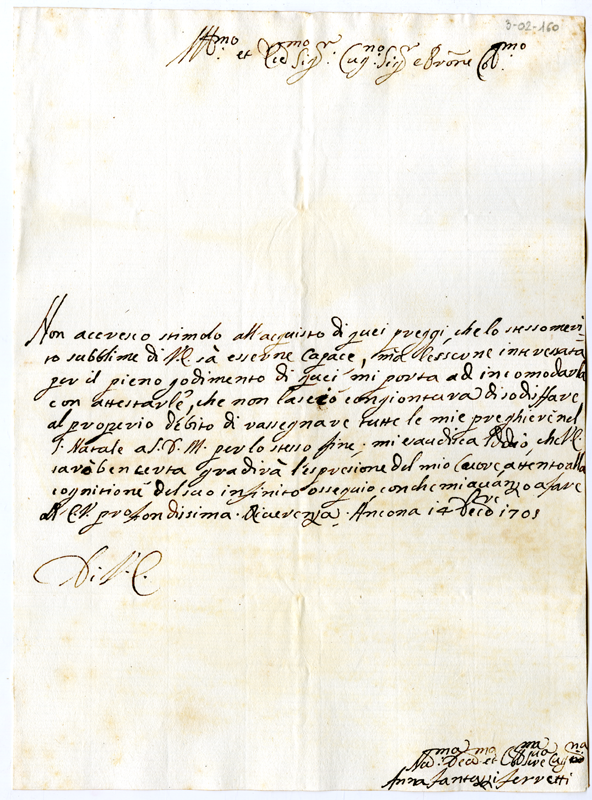 3-02-160
Ill.mo et Ecc.mo Sig.r Cug.no Sig.r e Prõne Col.mo
Non acresco stimolo all'acquisto di quei preggi, che lo stesso meri-
to subblime di V.E. sà esserne capace, mà l'esserne interessata
per il pieno godimento di quei mi porta ad incomodarla
con attestarle, che non lascio congiontura di sodisfare
al proprio debito di rassegnare tutte le mie preghiere nel
S. Natale a S.D.M. per lo stesso fine; mi esaudisca Iddio, che V.E.
sarò ben certa gradirà l'espresione del mio Cuore attento alla
cognitione del suo infinito ossequio con che mi avanzo a fare
All'E.V. profondissima Riverenza. Ancona 14 Decbre 1705
Di V.E.
Dev.ma et Obl.ma Cug.na
Anna Fantuzzi Ferretti